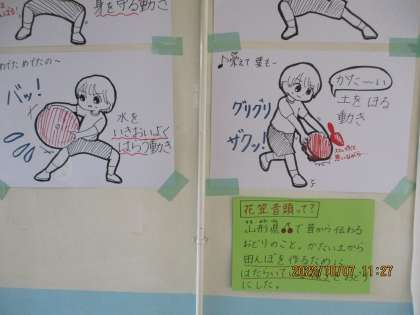 身を守る動き
めでためでたの〜
バッ!
水を
いきおいよく
はらう動き
♪栄えて 葉も〜
かた〜い
土をほる
動き
グリグリ
ザクッ!
花笠音頭って?
山形県で昔から伝わる
おどりのこと。かたい土から
田んぼを作るために
はたらいて
にした。
2022/10/07 11:27